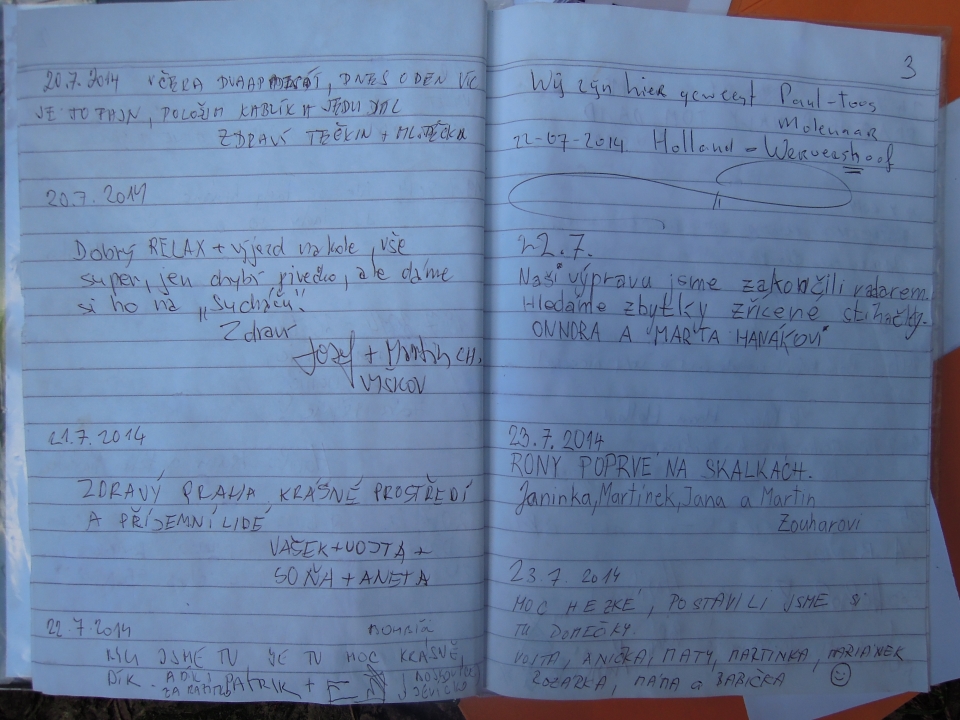 20.7.2014 VČERA DVAAPADESÁT, DNES O DEN VÍC
JE TO FAJN, POLOŽIM KABLÍK A JEDU DÁL
ZDRAVÍ TEČKIN +
20.7.2014
Dobrý RELAX + výjezd na kole, vše
super, jen chybí pivečko, ale dáme
si ho na „Sucháču".
Zdraví
Jozef + Martin CH.
VYŠKOV
21.7.2014
ZDRAVÝ PRAHA, KRÁSNÉ PROSTŘEDÍ
A PŘÍJEMNÍ LIDÉ
VAŠEK + VOJTA +
SOŇA + ANETA
22.7.2014
MY JSME TU, JE TU MOC KRÁSNĚ,
DÍK. PATRIK +
3
Wij zijn hier geweest Paul-Toos
Molenaar
22-07-2014 Holland - Wervershoof
22.7.
Naši výpravu jsme zakončili radarem.
Hledáme zbytky zřícené stíhačky.
ONNDRA A MARTA HANÁKOVI
23.7.2014
RONY POPRVÉ NA SKALKÁCH.
Janinka, Martínek, Jana a Martin
Zouharovi
23.7.2014
MOC HEZKÉ, POSTAVILI JSME SI
TU DOMEČKY.
VOJTA, ANIČKA, MATY, MARTINKA, MARIANEK
ROZÁRKA, MÁMA a BABIČKA